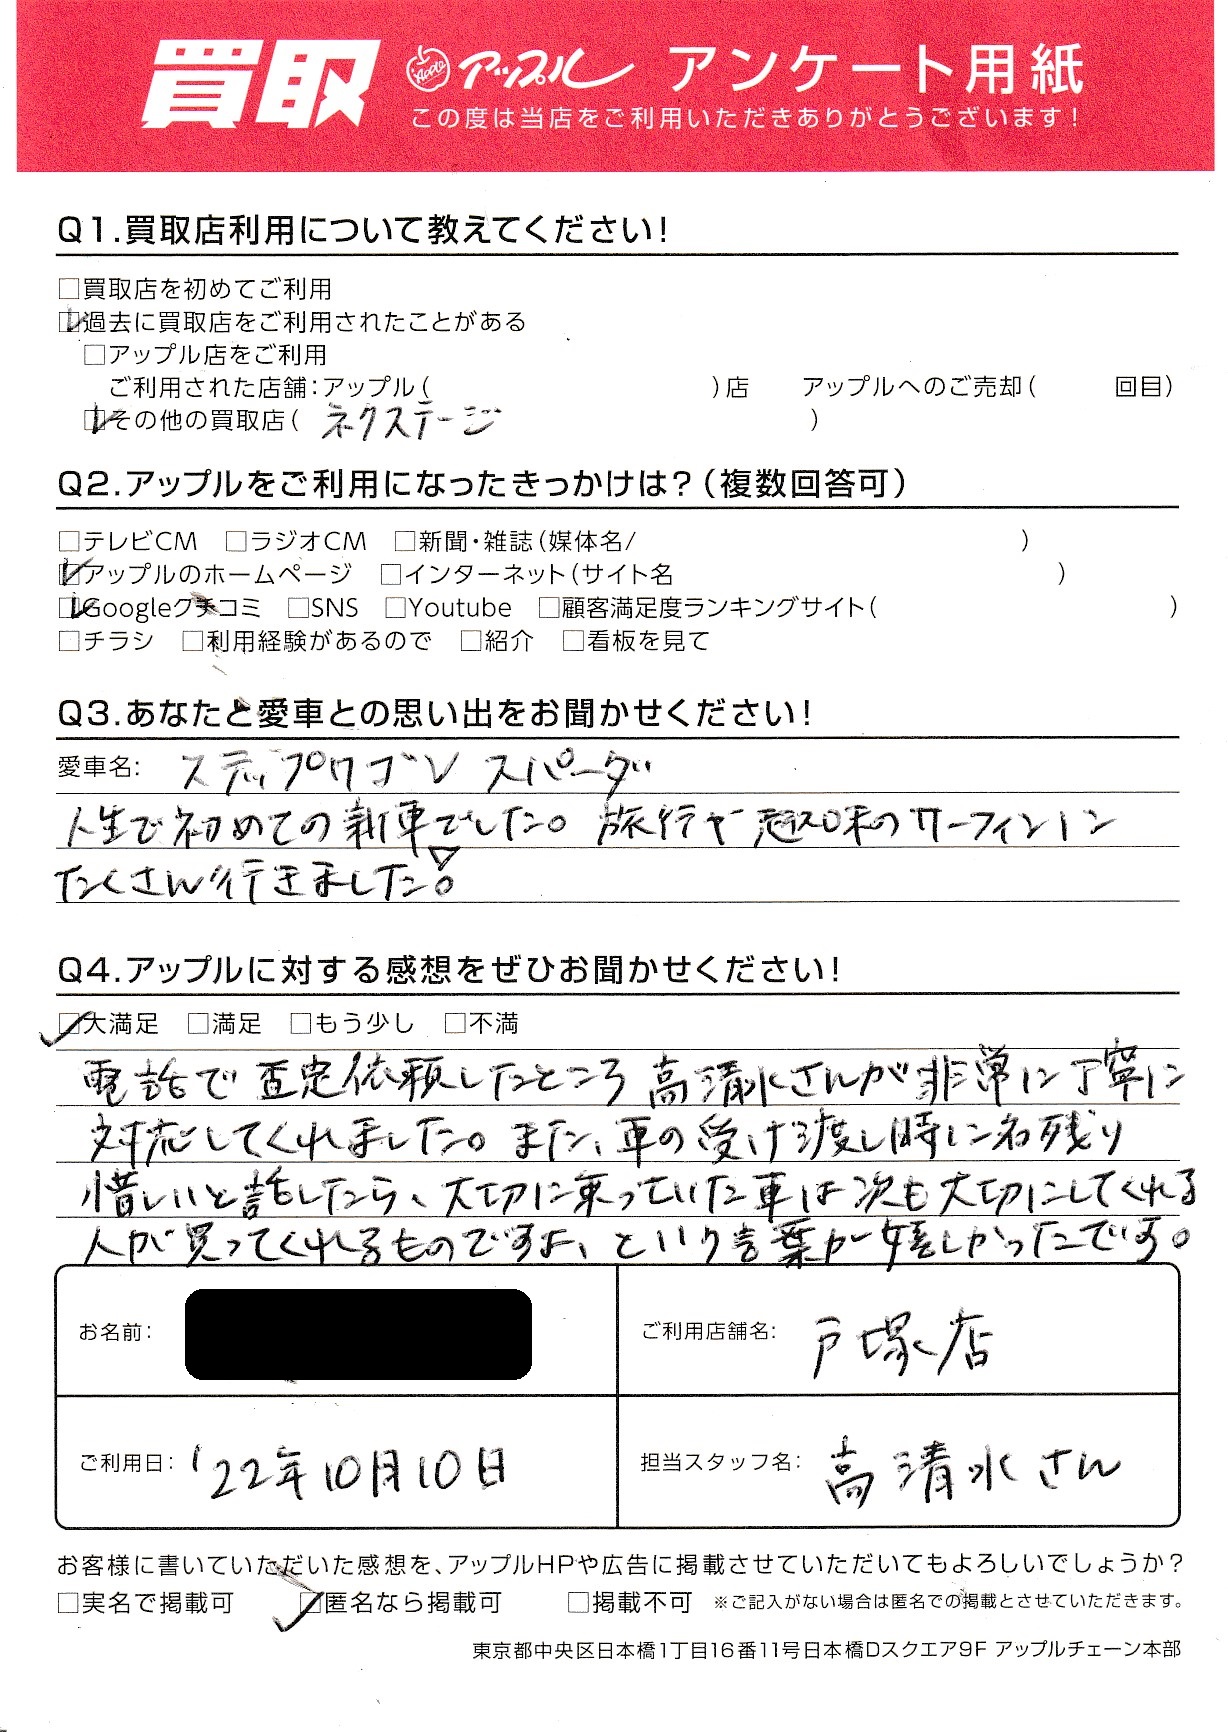 買取 Apple アップル アンケート用紙
この度は当店をご利用いただきありがとうございます！
Q1.買取店利用について教えてください！
□買取店を初めてご利用
☑過去に買取店をご利用されたことがある
□アップル店をご利用
ご利用された店舗：アップル（ ）店 アップルへのご売却（ 回目）
☑その他の買取店（ ネクステージ ）
Q2.アップルをご利用になったきっかけは？（複数回答可）
□テレビCM □ラジオCM □新聞・雑誌（媒体名/ ）
☑アップルのホームページ □インターネット（サイト名 ）
☑Googleクチコミ □SNS □Youtube □顧客満足度ランキングサイト（ ）
□チラシ □利用経験があるので □紹介 □看板を見て
Q3.あなたと愛車との思い出をお聞かせください！
愛車名： ステップワゴン スパーダ
人生で初めての新車でした。旅行や趣味のサーフィンに
たくさん行きました。
Q4.アップルに対する感想をぜひお聞かせください！
☑大満足 □満足 □もう少し □不満
電話で査定依頼したところ高清水さんが非常に丁寧に
対応してくれました。また、車の受け渡し時に名残り
惜しいと話したら、大切に乗っていた車は次も大切にしてくれる
人が買ってくれるものですよ、という言葉が嬉しかったです。
お名前： ご利用店舗名： 戸塚店
ご利用日： '22年10月10日 担当スタッフ名： 高清水さん
お客様に書いていただいた感想を、アップルHPや広告に掲載させていただいてもよろしいでしょうか？
□実名で掲載可 ☑匿名なら掲載可 □掲載不可 ※ご記入がない場合は匿名での掲載とさせていただきます。
東京都中央区日本橋1丁目16番11号日本橋Dスクエア9F アップルチェーン本部